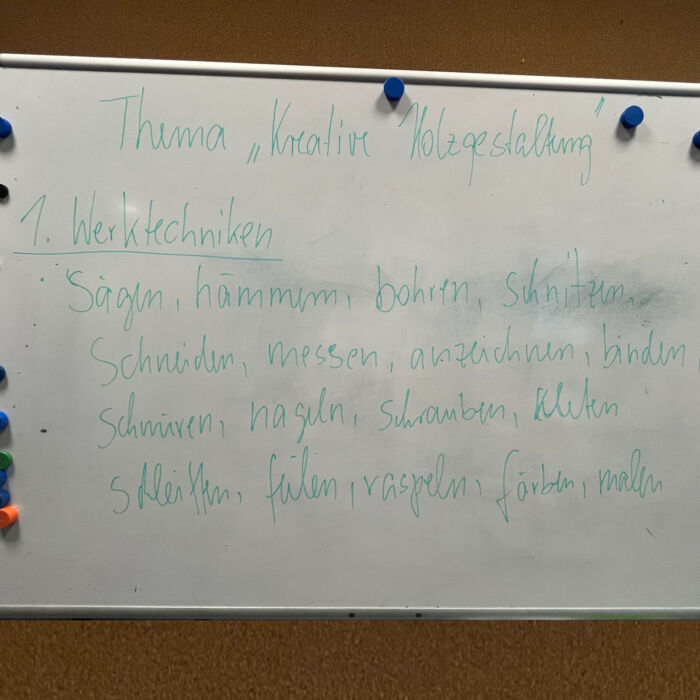 Thema „Kreative Holzgestaltung"
1. Werktechniken
· Sägen, hämmern, bohren, schnitzen,
Schneiden, messen, anzeichnen, binden,
Schnüren, nageln, schrauben, kleben
schleiffen, feilen, raspeln, färben, malen